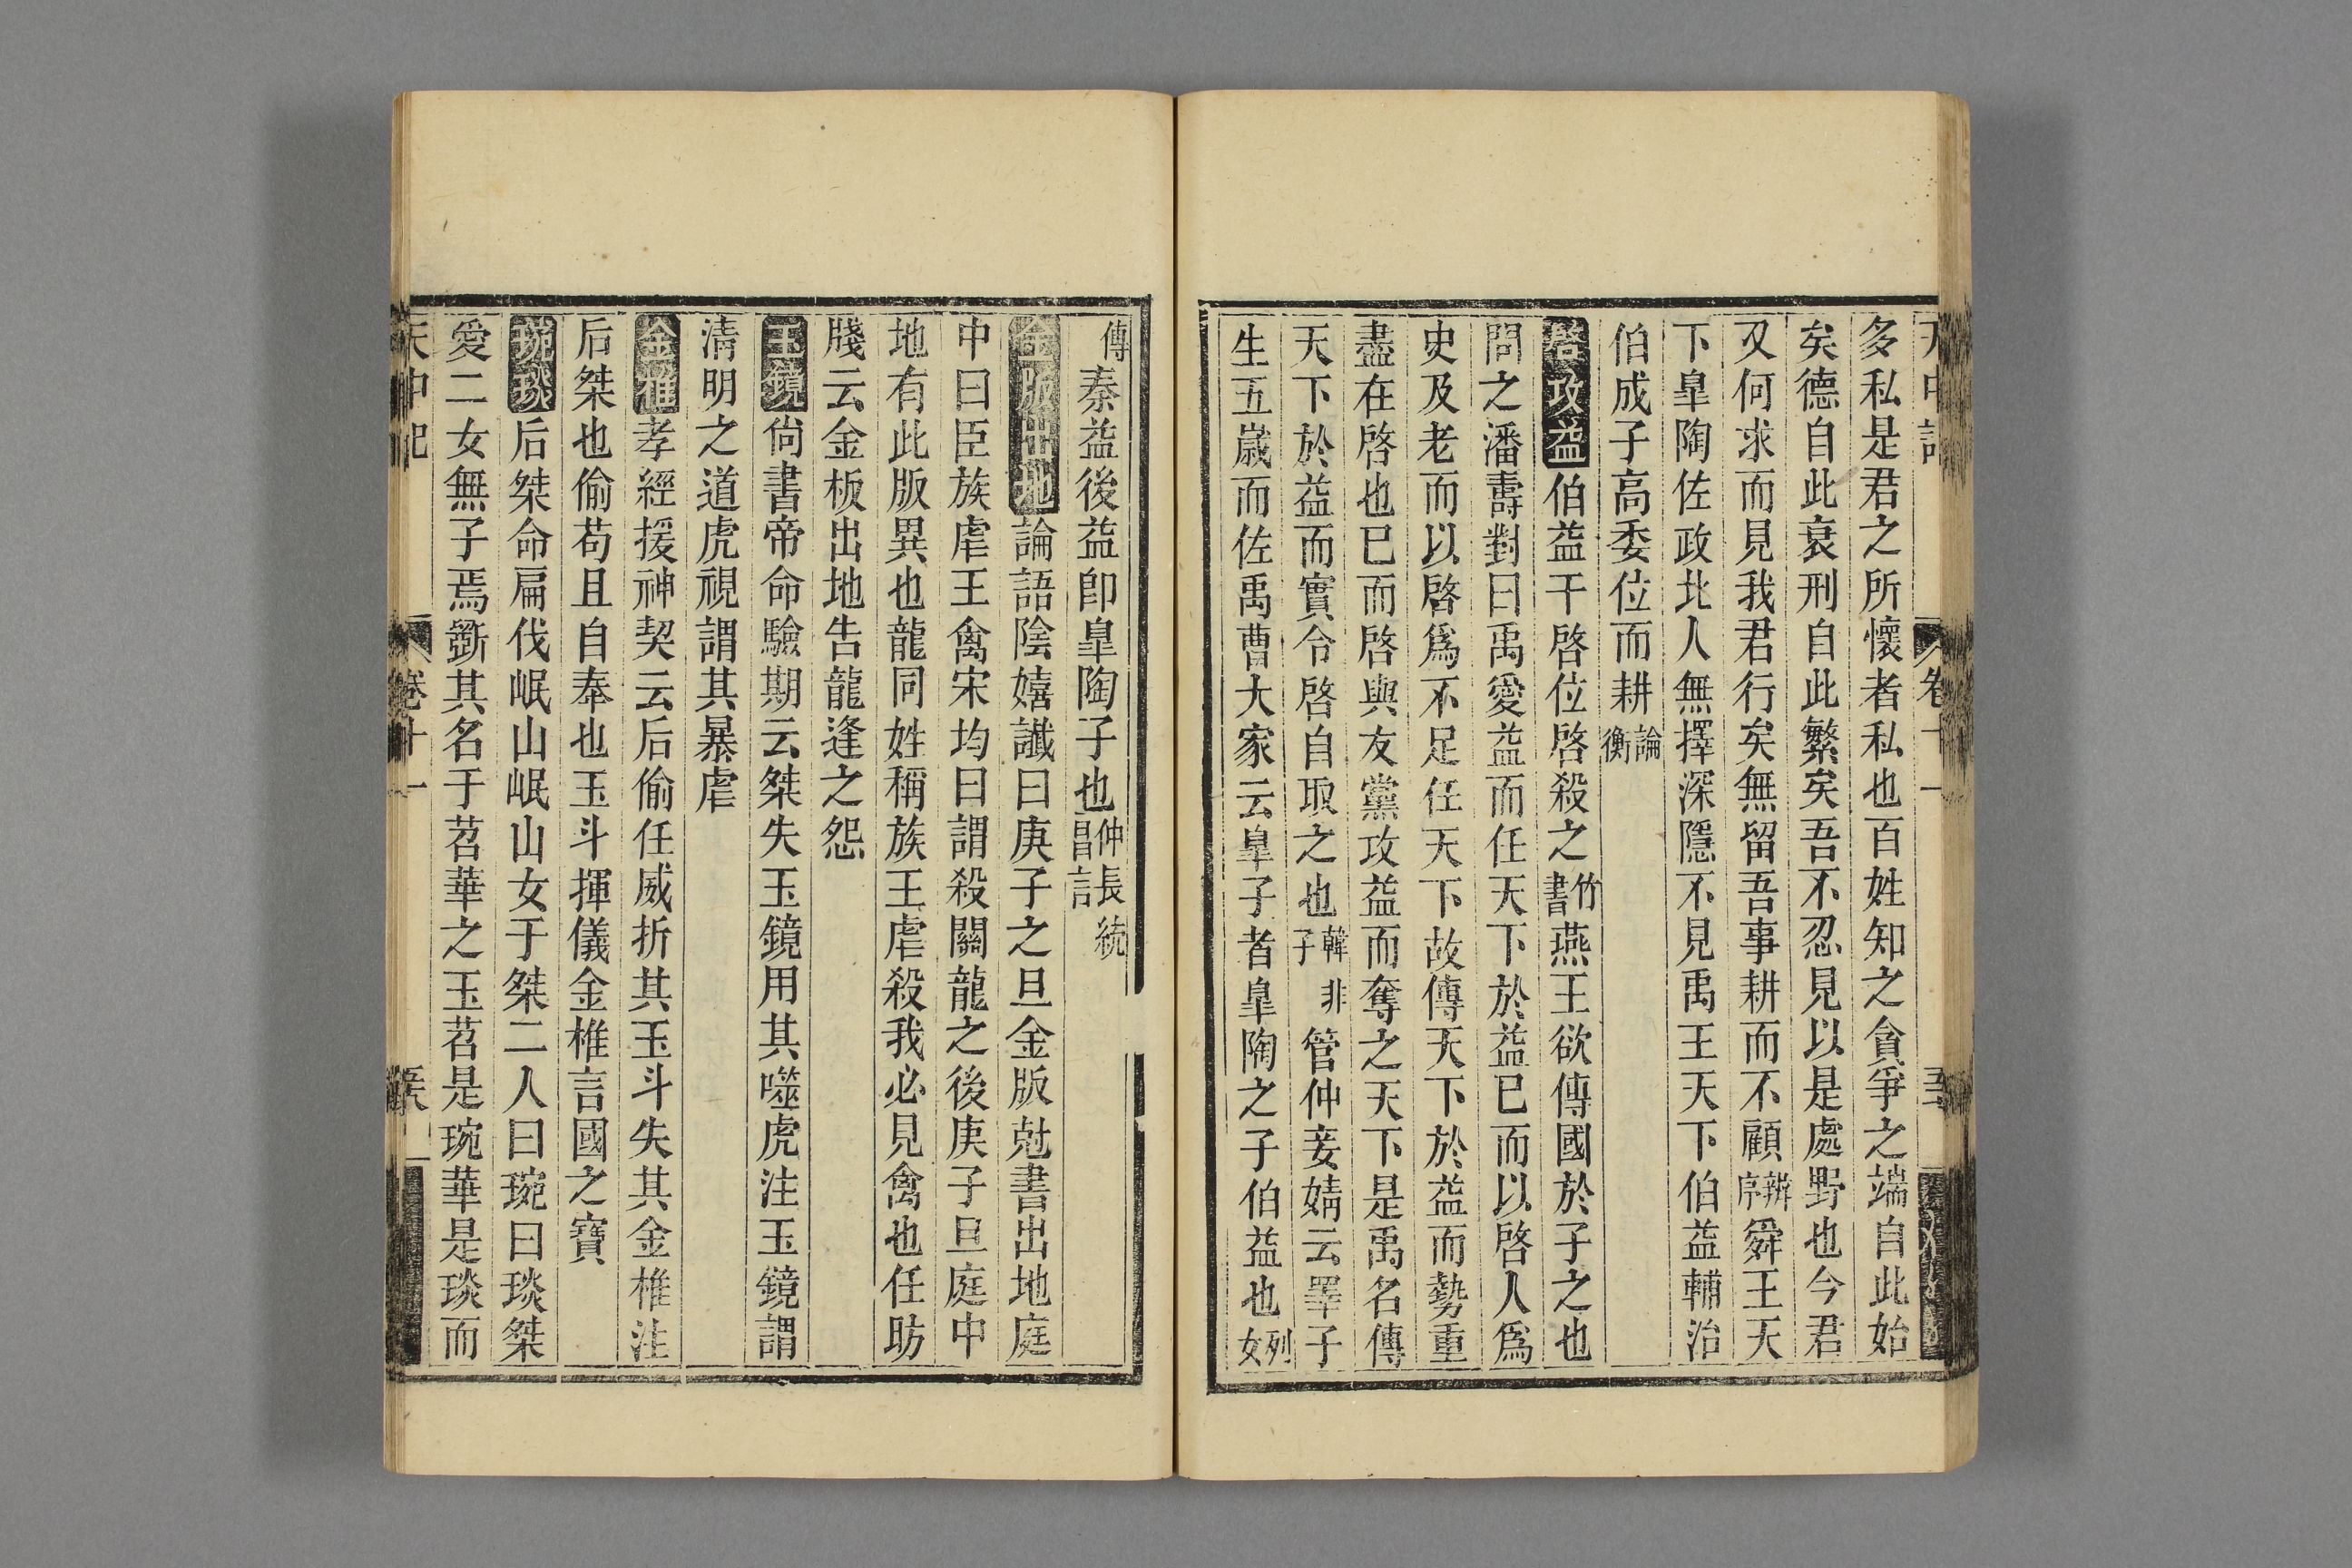 天中記
卷十一
多私是君之所懷者私也百姓知之貪爭之端自此始
矣德自此衰刑自此繁矣吾不忍見以是處野也今君
又何求而見我君行矣無留吾事耕而不顧辨序舜王天
下臯陶佐政北人無擇深隱不見禹王天下伯益輔治
伯成子高委位而耕論衡
啓攻益伯益干啓位啓殺之竹書燕王欲傳國於子之也
問之潘壽對曰禹愛益而任天下於益已而以啓人爲
史及老而以啓爲不足任天下故傳天下於益而勢重
盡在啓也已而啓與友黨攻益而奪之天下是禹名傳
天下於益而實令啓自取之也韓非子管仲妾婧云睪子
生五歲而佐禹曹大家云臯子者臯陶之子伯益也列女
傳秦益後益卽臯陶子也仲長統昌言
金版出地論語陰嬉讖曰庚子之旦金版尅書出地庭
中曰臣族虐王禽宋均曰謂殺關龍之後庚子旦庭中
地有此版異也龍同姓稱族王虐殺我必見禽也任昉
牋云金板出地告龍逢之怨
玉鏡尙書帝命驗期云桀失玉鏡用其噬虎注玉鏡謂
淸明之道虎視謂其暴虐
金椎孝經援神契云后偷任威折其玉斗失其金椎注
后桀也偷苟且自奉也玉斗揮儀金椎言國之寶
琬琰后桀命扁伐岷山岷山女于桀二人曰琬曰琰桀
愛二女無子焉斲其名于苕華之玉苕是琬華是琰而
天中記
卷十一